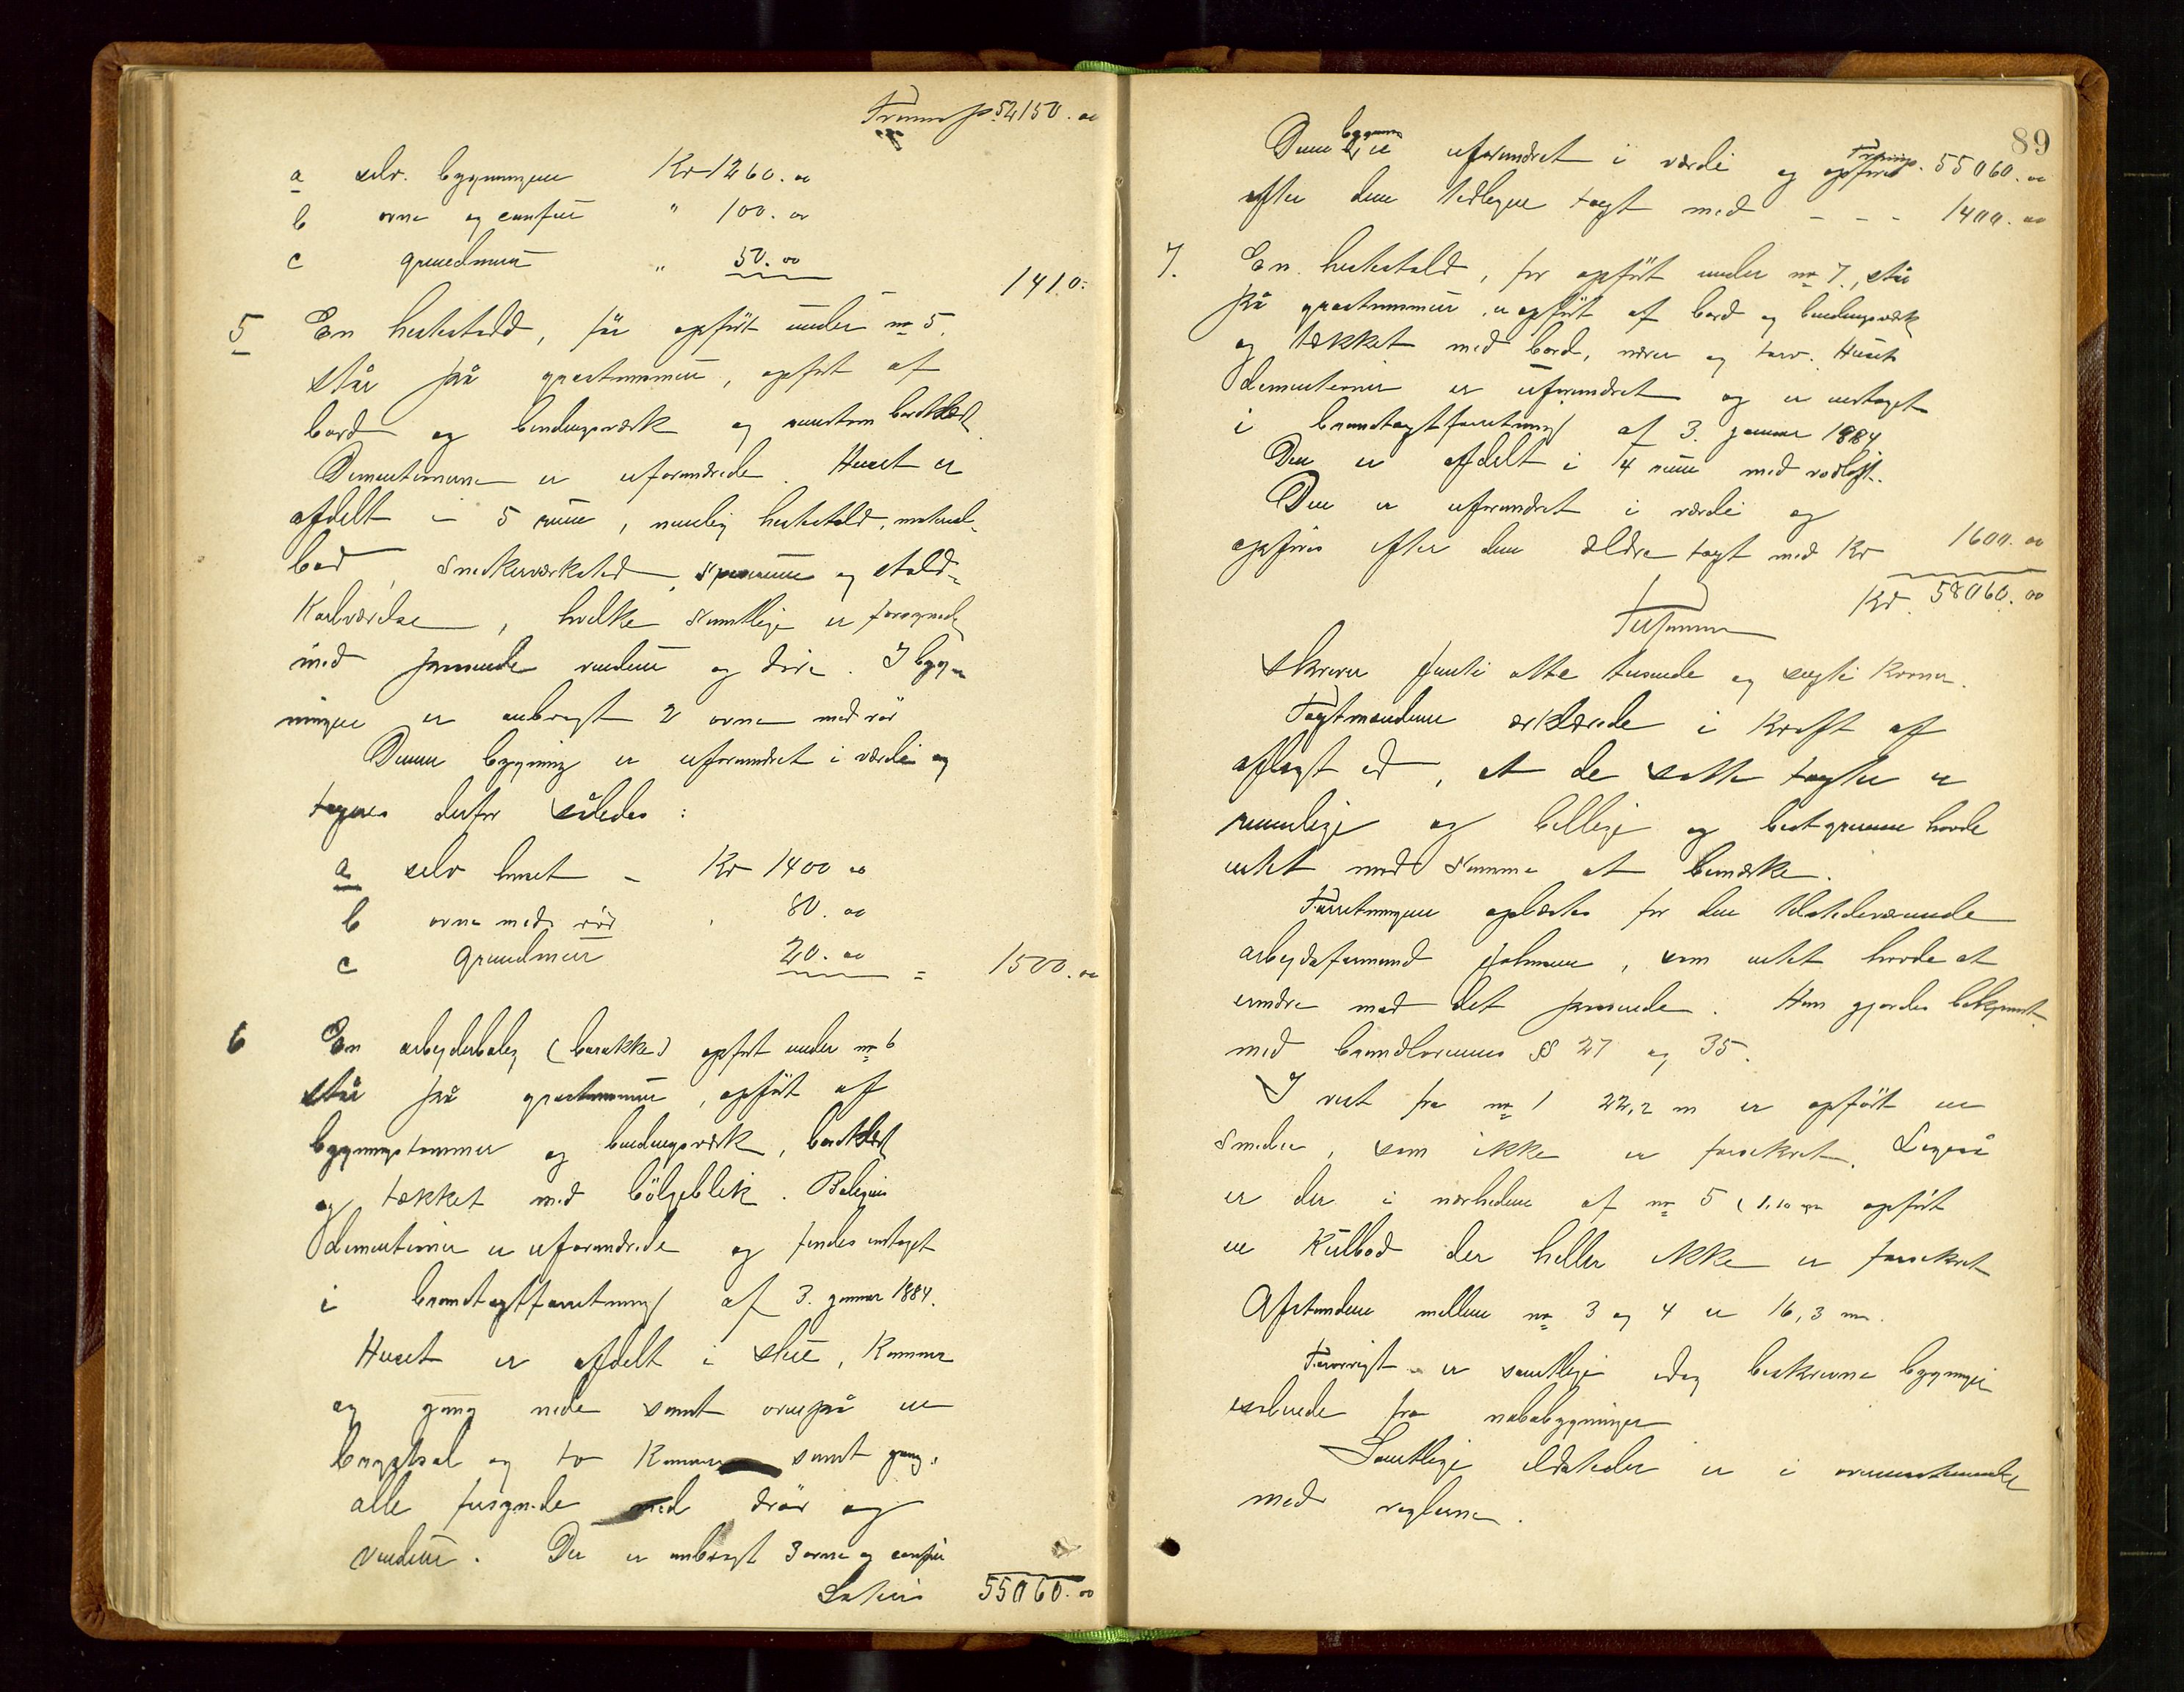 Transp. 52150.00
a selv. bygningen Kr 1260.00
b ovne og comfur " 100.00
c grundmur " 50.00
1410.
5 En hestestald, før opført under no 5.
står på gråstensmur, opført af
bord og bindingsværk og bordklædt.
Dimentionerne er uforandrede. Huset er
afdelt i 5 rum, nemlig hestestald, material-
bod, snekkerværksted, og stald-
Karlværelse, hvilke samtlige er forsynede
med passende vinduer og døre. I byg-
ningen er anbragt 2 ovne med rør
Denne bygning er uforandret i værdi og
taxeres derfor således:
a selv huset - Kr 1400.00
b ovne med rør 80.00
c grundmur 20.00 = 1500.00
6 En arbejderbolig (barakke) opført under no 6
står på gråstensmur, opført af
bygningstømmer og bindingsværk, bordklædt
og tækket med bølgeblik. Boligens
dimentioner er uforandrede og findes indtaget
i brandtagtforretning af 3. januar 1884.
Huset er afdelt i stue, Kammer
og gang nede samt ovenpå en
brygsal og to Kammer samt gang,
alle forsynede med døre og
vinduer. Der er anbragt 3 ovne og comfur
Lateris 55060.00
89
Transp. 55060.00
Denne bygning er uforandret i værdi og opføres
efter den tidligere tagt med - - - 1400.00
7. En hestestald, før opført under no 7, står
på gråstensmur, er opført af bord og bindingsværk
og tækket med bord, næver og torv. Husets
dimentioner er uforandret og er indtaget
i brandtagtforretning af 3. januar 1884
Den er afdelt i 4 rum med
Den er uforandret i værdi og
opføres efter den ældre tagt med Kr 1600.00
Tilsammen Kr. 58060.00
skriver femti otte tusende og sexti Kroner.
Tagtmændene erklærede i Kraft af
aflagt ed, at de satte tagter er
rimelige og billige og bestyreren havde
intet mod samme at bemærke.
Forretningen oplæstes for den tilstedeværende
arbejdsformand Johnsen, som intet havde at
erindre mod det passerede. Han gjordes bekjendt
med brandlovenes §§ 27 og 35.
I vest fra no 1 22,2 m er opført en
smedie, som ikke er forsikret. Ligeså
er der i nærheden af no 5 opført
en Kulbod der heller ikke er forsikret
Afstanden mellem no 3 og 4 er 16,3 m.
Forøvrigt er samtlige idag beskrevne bygninger
isolerede fra nabobygninger
Samtlige ildsteder er i overensstemmelse
med reglerne.